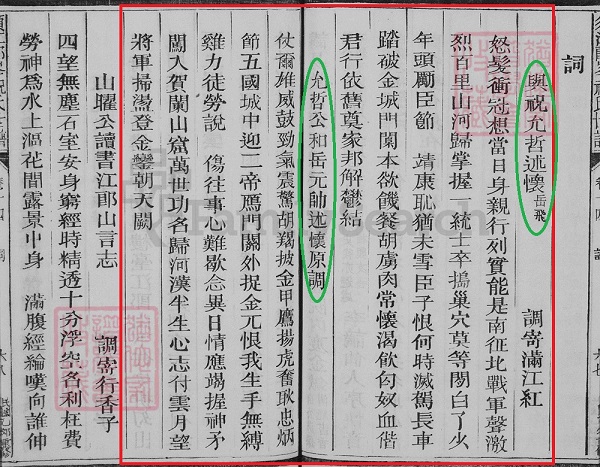 詞
與祝允哲述懷 岳飛
調寄滿江紅
怒髮衝冠想當日身親行列實能是南征北戰軍聲激
烈百里山河歸掌握一統士卒搗巢穴莫等閒白了少
年頭勵臣節　靖康恥猶未雪臣子恨何時滅駕長車
踏破金城門闕本欲飢餐胡虜肉常懷渴飲匈奴血偕
君行依舊奠家邦解鬱結
允哲公和岳元帥述懷原調
仗爾雄威鼓勁氣震驚胡羯披金甲鷹揚虎奮耿忠炳
節五國城中迎二帝鴈門關外捉金兀恨我生手無縛
雞力徒勞說　傷往事心難歇念異日情應竭握神矛
闖入賀蘭山窟萬世功名歸河漢半生心志付雲月望
將軍掃盪登金鑾朝天闕
山曜公讀書江郎山言志
調寄行香子
四望無塵石室安身窮經時精透十分浮空名利枉費
勞神為水上漚花間露景中身　滿腹經綸嘆向誰伸